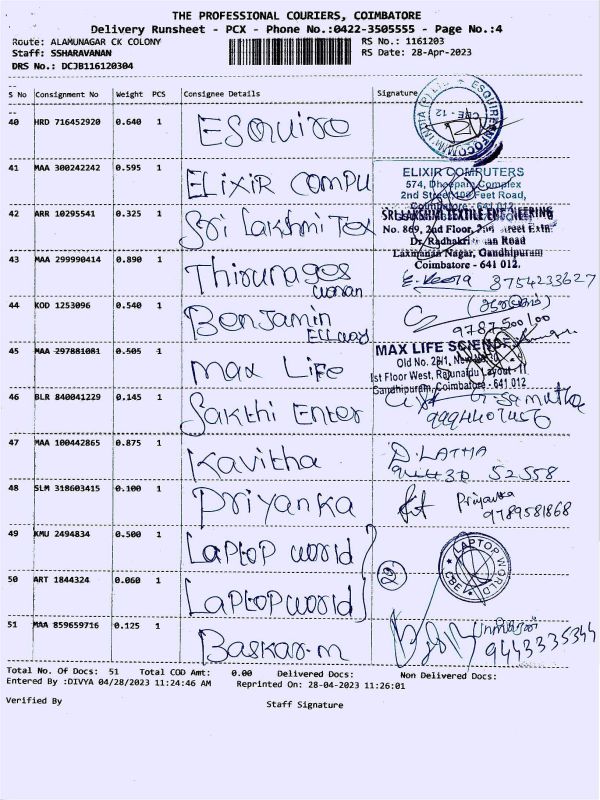 THE PROFESSIONAL COURIERS, COIMBATORE
Delivery Runsheet - PCX - Phone No.:0422-3505555 - Page No.:4
Route: ALAMUNAGAR CK COLONY RS No.: 1161203
Staff: SSHARAVANAN RS Date: 28-Apr-2023
DRS No.: DCJB116120304
S No Consignment No Weight PCS Consignee Details Signature
40 HRD 716452920 0.640 1 Esquire
CBE - 12
41 MAA 300242242 0.595 1 Elixir Compu
ELIXIR COMPUTERS
574, Complex
2nd Street, 100 Feet Road,
Coimbatore - 641 012
42 ARR 10295541 0.325 1 Sri Lakshmi Tex
SRI LAKSHMI TEXTILE ENGINEERING
No. 869, 2nd Floor, Street Extn.
Dr. Road
Laxmanan Nagar, Gandhipuram
Coimbatore - 641 012.
43 MAA 299990414 0.890 1 8754233627
44 KOD 1253096 0.540 1 Benjamin
9787500100
45 MAA 297881081 0.505 1 Max Life
MAX LIFE SCIENCE
Old No. 28/1,
1st Floor West, Rajunaidu Layout - II
Gandhipuram, Coimbatore - 641 012
46 BLR 840041229 0.145 1 Sakthi Enter
47 MAA 100442865 0.875 1 Kavitha D. LATHA
52558
48 SLM 318603415 0.100 1 Priyanka Priyanka
9789581868
49 KMU 2494834 0.500 1 Laptop world
LAPTOP WORLD
CBE
50 ART 1844324 0.060 1 Laptop world
51 MAA 859659716 0.125 1 Baskar.m
9443335344
Total No. Of Docs: 51 Total COD Amt: 0.00 Delivered Docs: Non Delivered Docs:
Entered By :DIVYA 04/28/2023 11:24:46 AM Reprinted On: 28-04-2023 11:26:01
Verified By Staff Signature